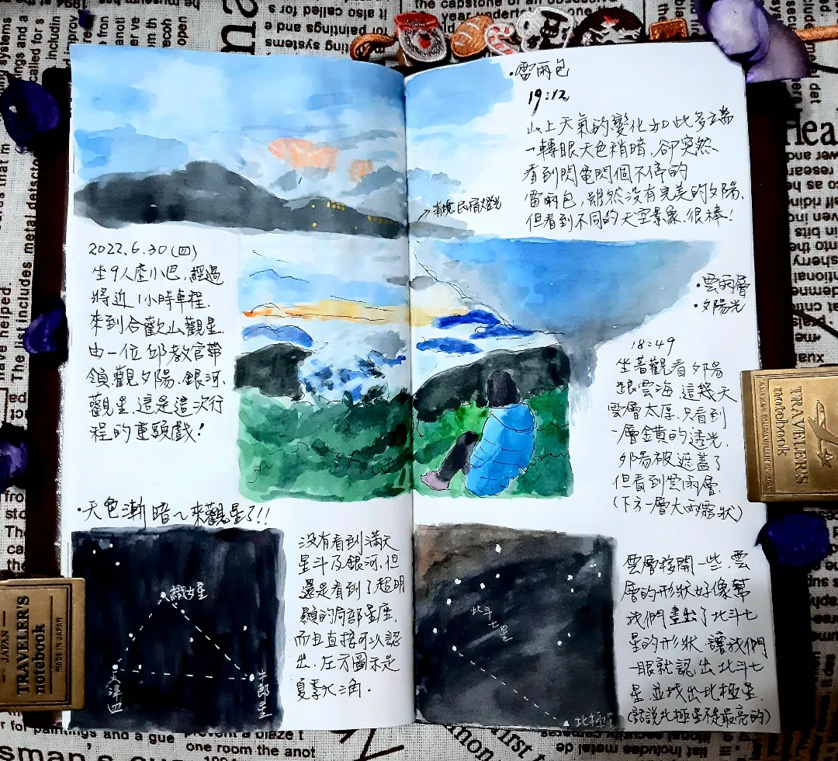 ・雷雨包
19:12
山上天氣的變化如此多端
一轉眼天色稍暗,卻突然
看到閃電閃個不停的
雷雨包,雖然沒有完美的夕陽,
但看到不同的天空景象,很棒!
民宿燈光
2022.6.30(四)
坐9人座小巴,經過
將近1小時車程,
來到合歡山觀星,
由一位邱教官帶
領觀夕陽、銀河、
觀星,這是這次行
程的重頭戲!
・雲雨層
・夕陽光
18:49
坐著觀看夕陽
跟雲海,這幾天
雲層太厚,只看到
一層金黃的透光,
夕陽被遮蓋了
但看到雲雨層.
(下方一層大的霧狀)
・天色漸暗~來觀星了!!
織女星
天津四
牛郎星
沒有看到滿天
星斗及銀河,但
還是看到了超明
顯的局部星座,
而且直接可以認
出,左方圖示是
夏季大三角.
北斗七星
北極星
雲層移開一些,雲
層的形狀好像幫
我們畫出了北斗七
星的形狀,讓我們
一眼就認出北斗七
星並找出北極星.
(話說北極星不是最亮的)
TRAVELER'S
notebook
TRAVELER'S
notebook
MADE IN JAPAN
JAPAN